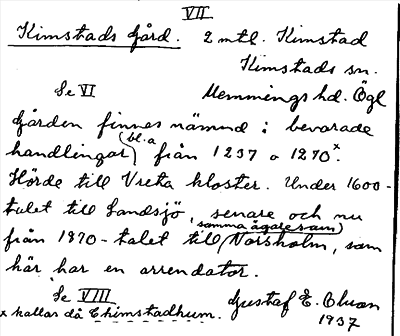 VII
Kimstads Gård. 2 mtl. Kimstad
Kimstads sn.
Se VI Memmings hd. Ögl
Gården finnes nämnd i bevarade
handlingar (bl.a) från 1237 o 1270x.
Hörde till Vreta kloster. Under 1600-
talet till Landsjö, senare och nu
samma ägare som
från 1870-talet till Norsholm, som
här har en arrendator.
Se VIII Gustaf E. Olsson
x kallas då Chimstadhum. 1937